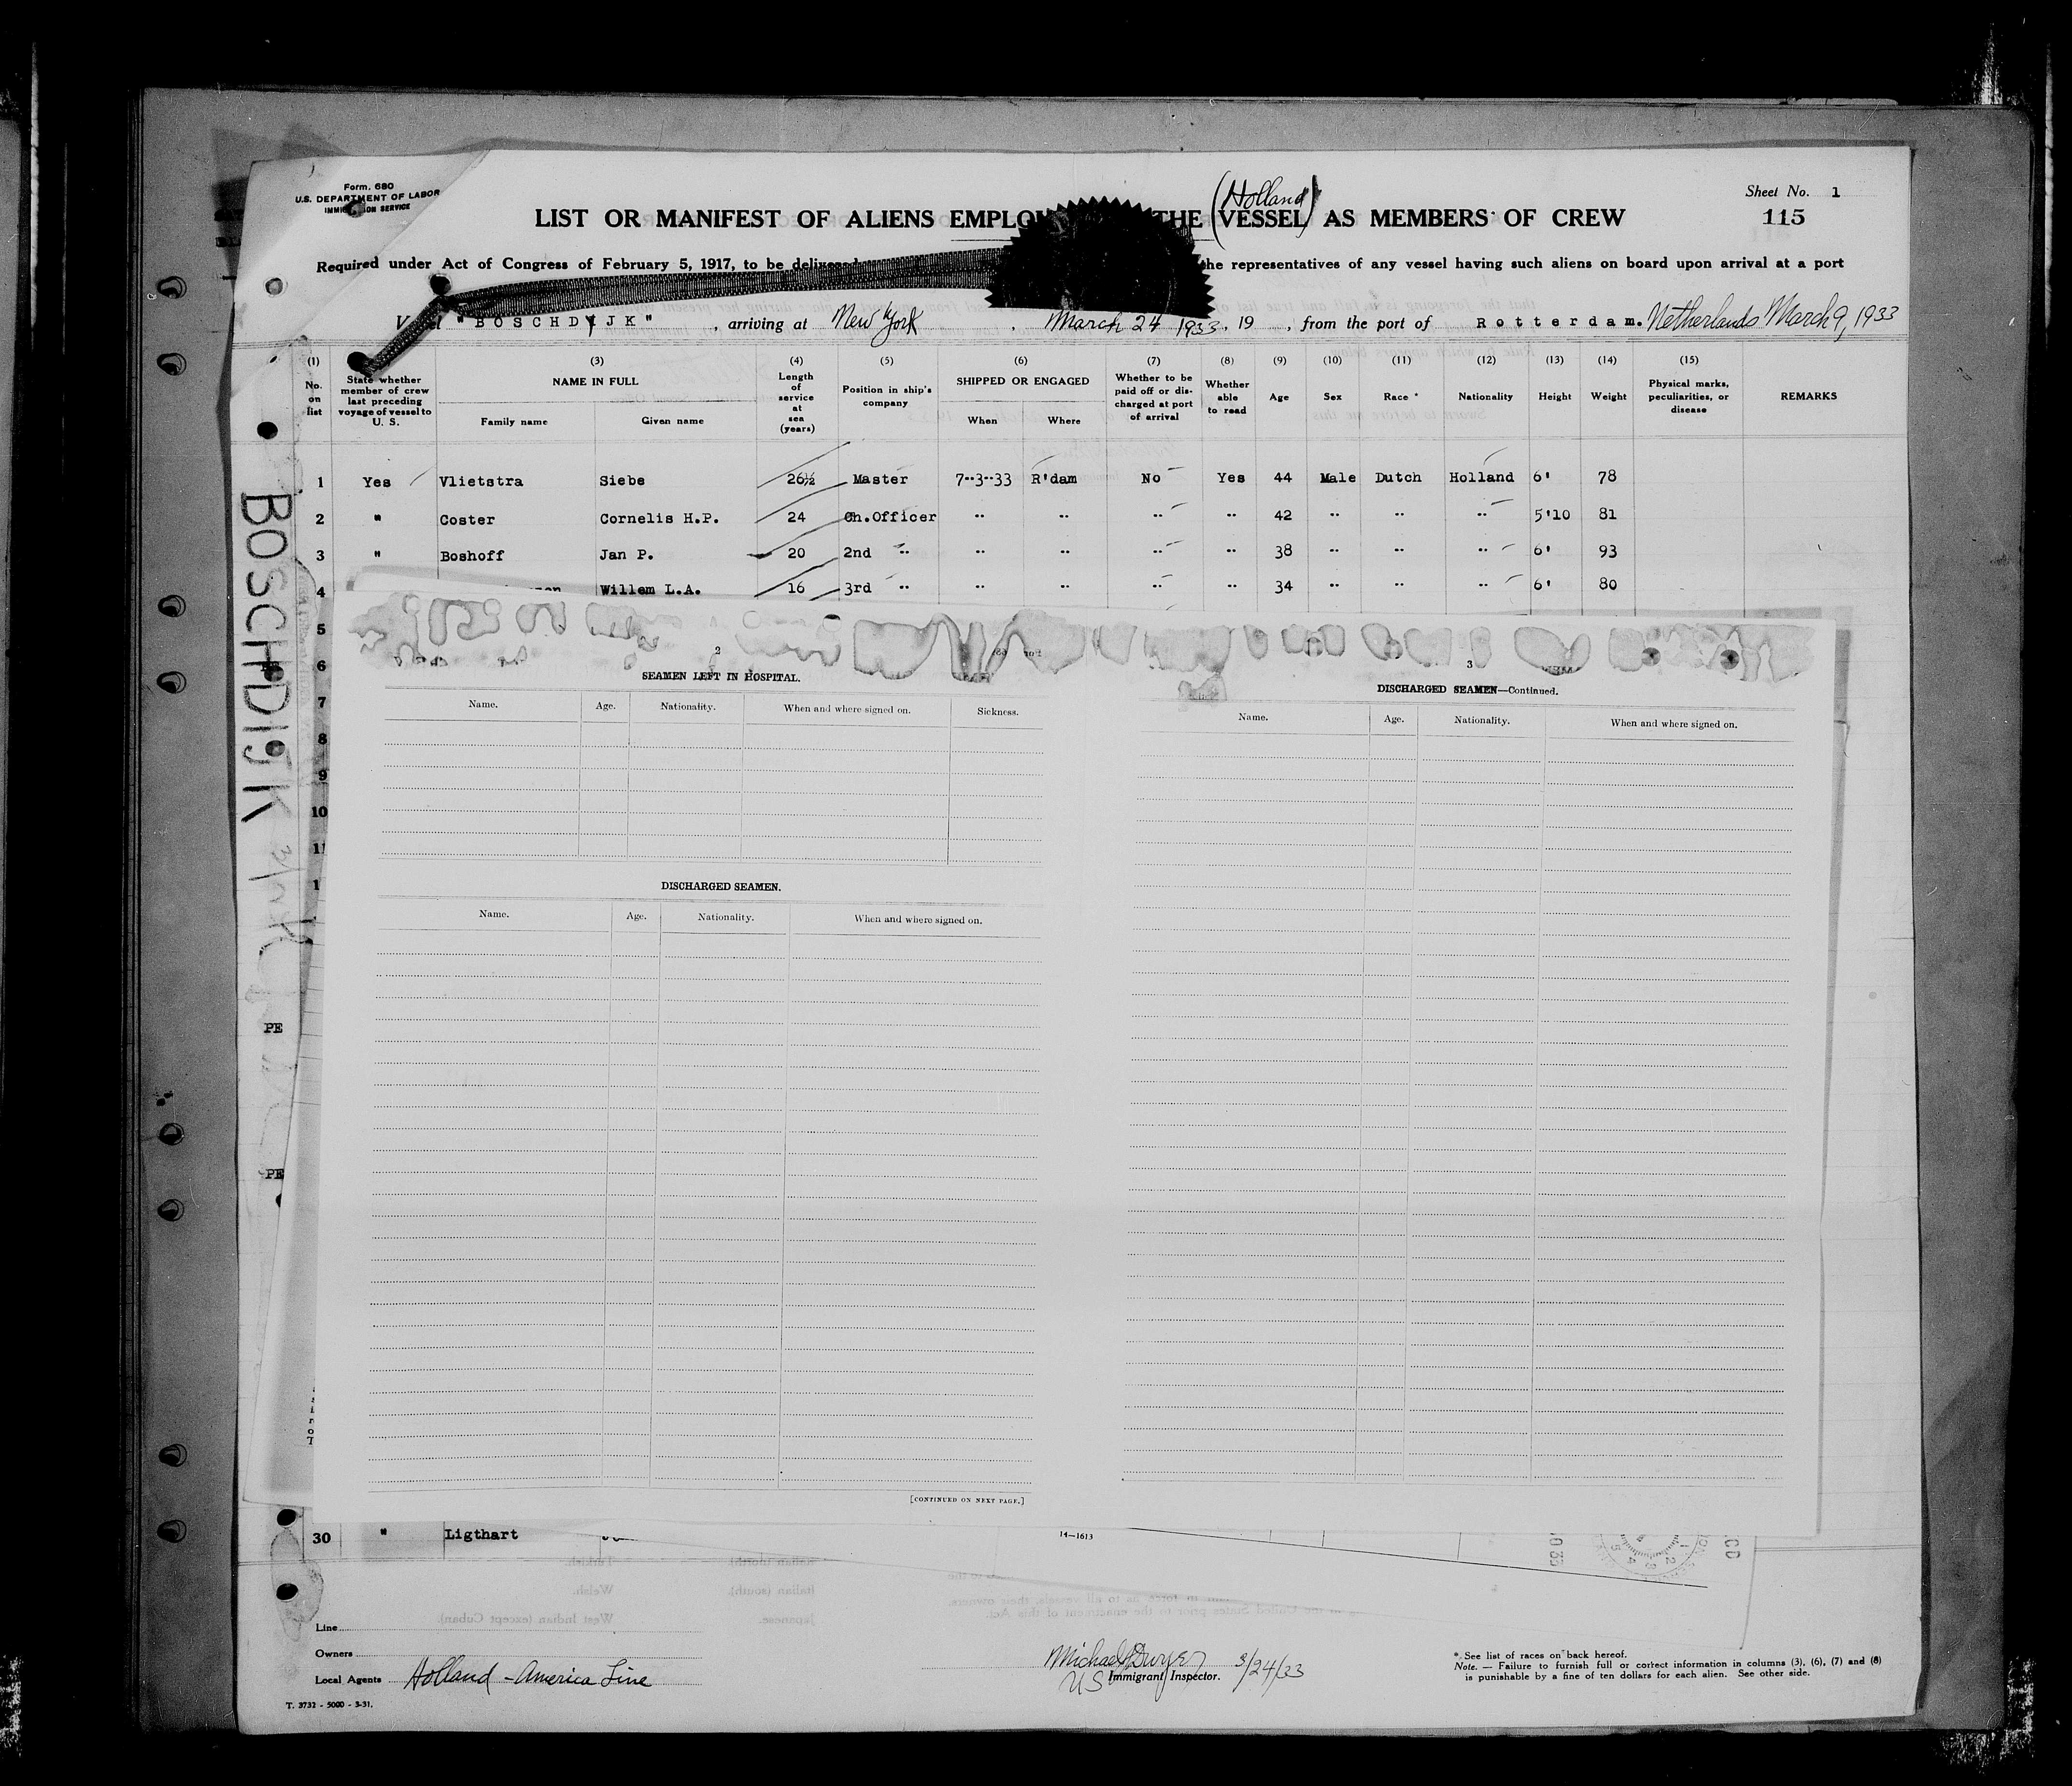 Form. 680
U.S. DEPARTMENT OF LABOR
IMMIGRATION SERVICE
(Holland)
Sheet No. 1
LIST OR MANIFEST OF ALIENS EMPLO THE VESSEL AS MEMBERS OF CREW
115
Required under Act of Congress of February 5, 1917, to be delivered the representatives of any vessel having such aliens on board upon arrival at a port
Vessel "BOSCHDIJK", arriving at New York, March 24 1933, 19 , from the port of Rotterdam. Netherlands March 9, 1933
(1) (3) (4) (5) (6) (7) (8) (9) (10) (11) (12) (13) (14) (15)
No. on list State whether member of crew last preceding voyage of vessel to U. S. NAME IN FULL Length of service at sea (years) Position in ship's company SHIPPED OR ENGAGED Whether to be paid off or discharged at port of arrival Whether able to read Age Sex Race * Nationality Height Weight Physical marks, peculiarities, or disease REMARKS
Family name Given name When Where
1 Yes Vlietstra Siebe 26½ Master 7--3--33 R'dam No Yes 44 Male Dutch Holland 6' 78
2 " Coster Cornelis H.P. 24 Ch.Officer " " " " 42 " " " 5'10 81
3 " Boshoff Jan P. 20 2nd " " " " " 38 " " " 6' 93
4 Willem L.A. 16 3rd " " " " " 34 " " " 6' 80
5
6
7
8
9
10
11
1
BOSCHDIJK
PE
PE
2
SEAMEN LEFT IN HOSPITAL.
Name. Age. Nationality. When and where signed on. Sickness.
DISCHARGED SEAMEN.
Name. Age. Nationality. When and where signed on.
[CONTINUED ON NEXT PAGE.]
3
DISCHARGED SEAMEN—Continued.
Name. Age. Nationality. When and where signed on.
30 " Ligthart
14—1613
Line
Owners
Local Agents Holland - America Line
T. 3732 - 5000 - 3-31.
Michael Dwyer 3/24/33
US Immigrant Inspector.
* See list of races on back hereof.
Note. — Failure to furnish full or correct information in columns (3), (6), (7) and (8)
is punishable by a fine of ten dollars for each alien. See other side.